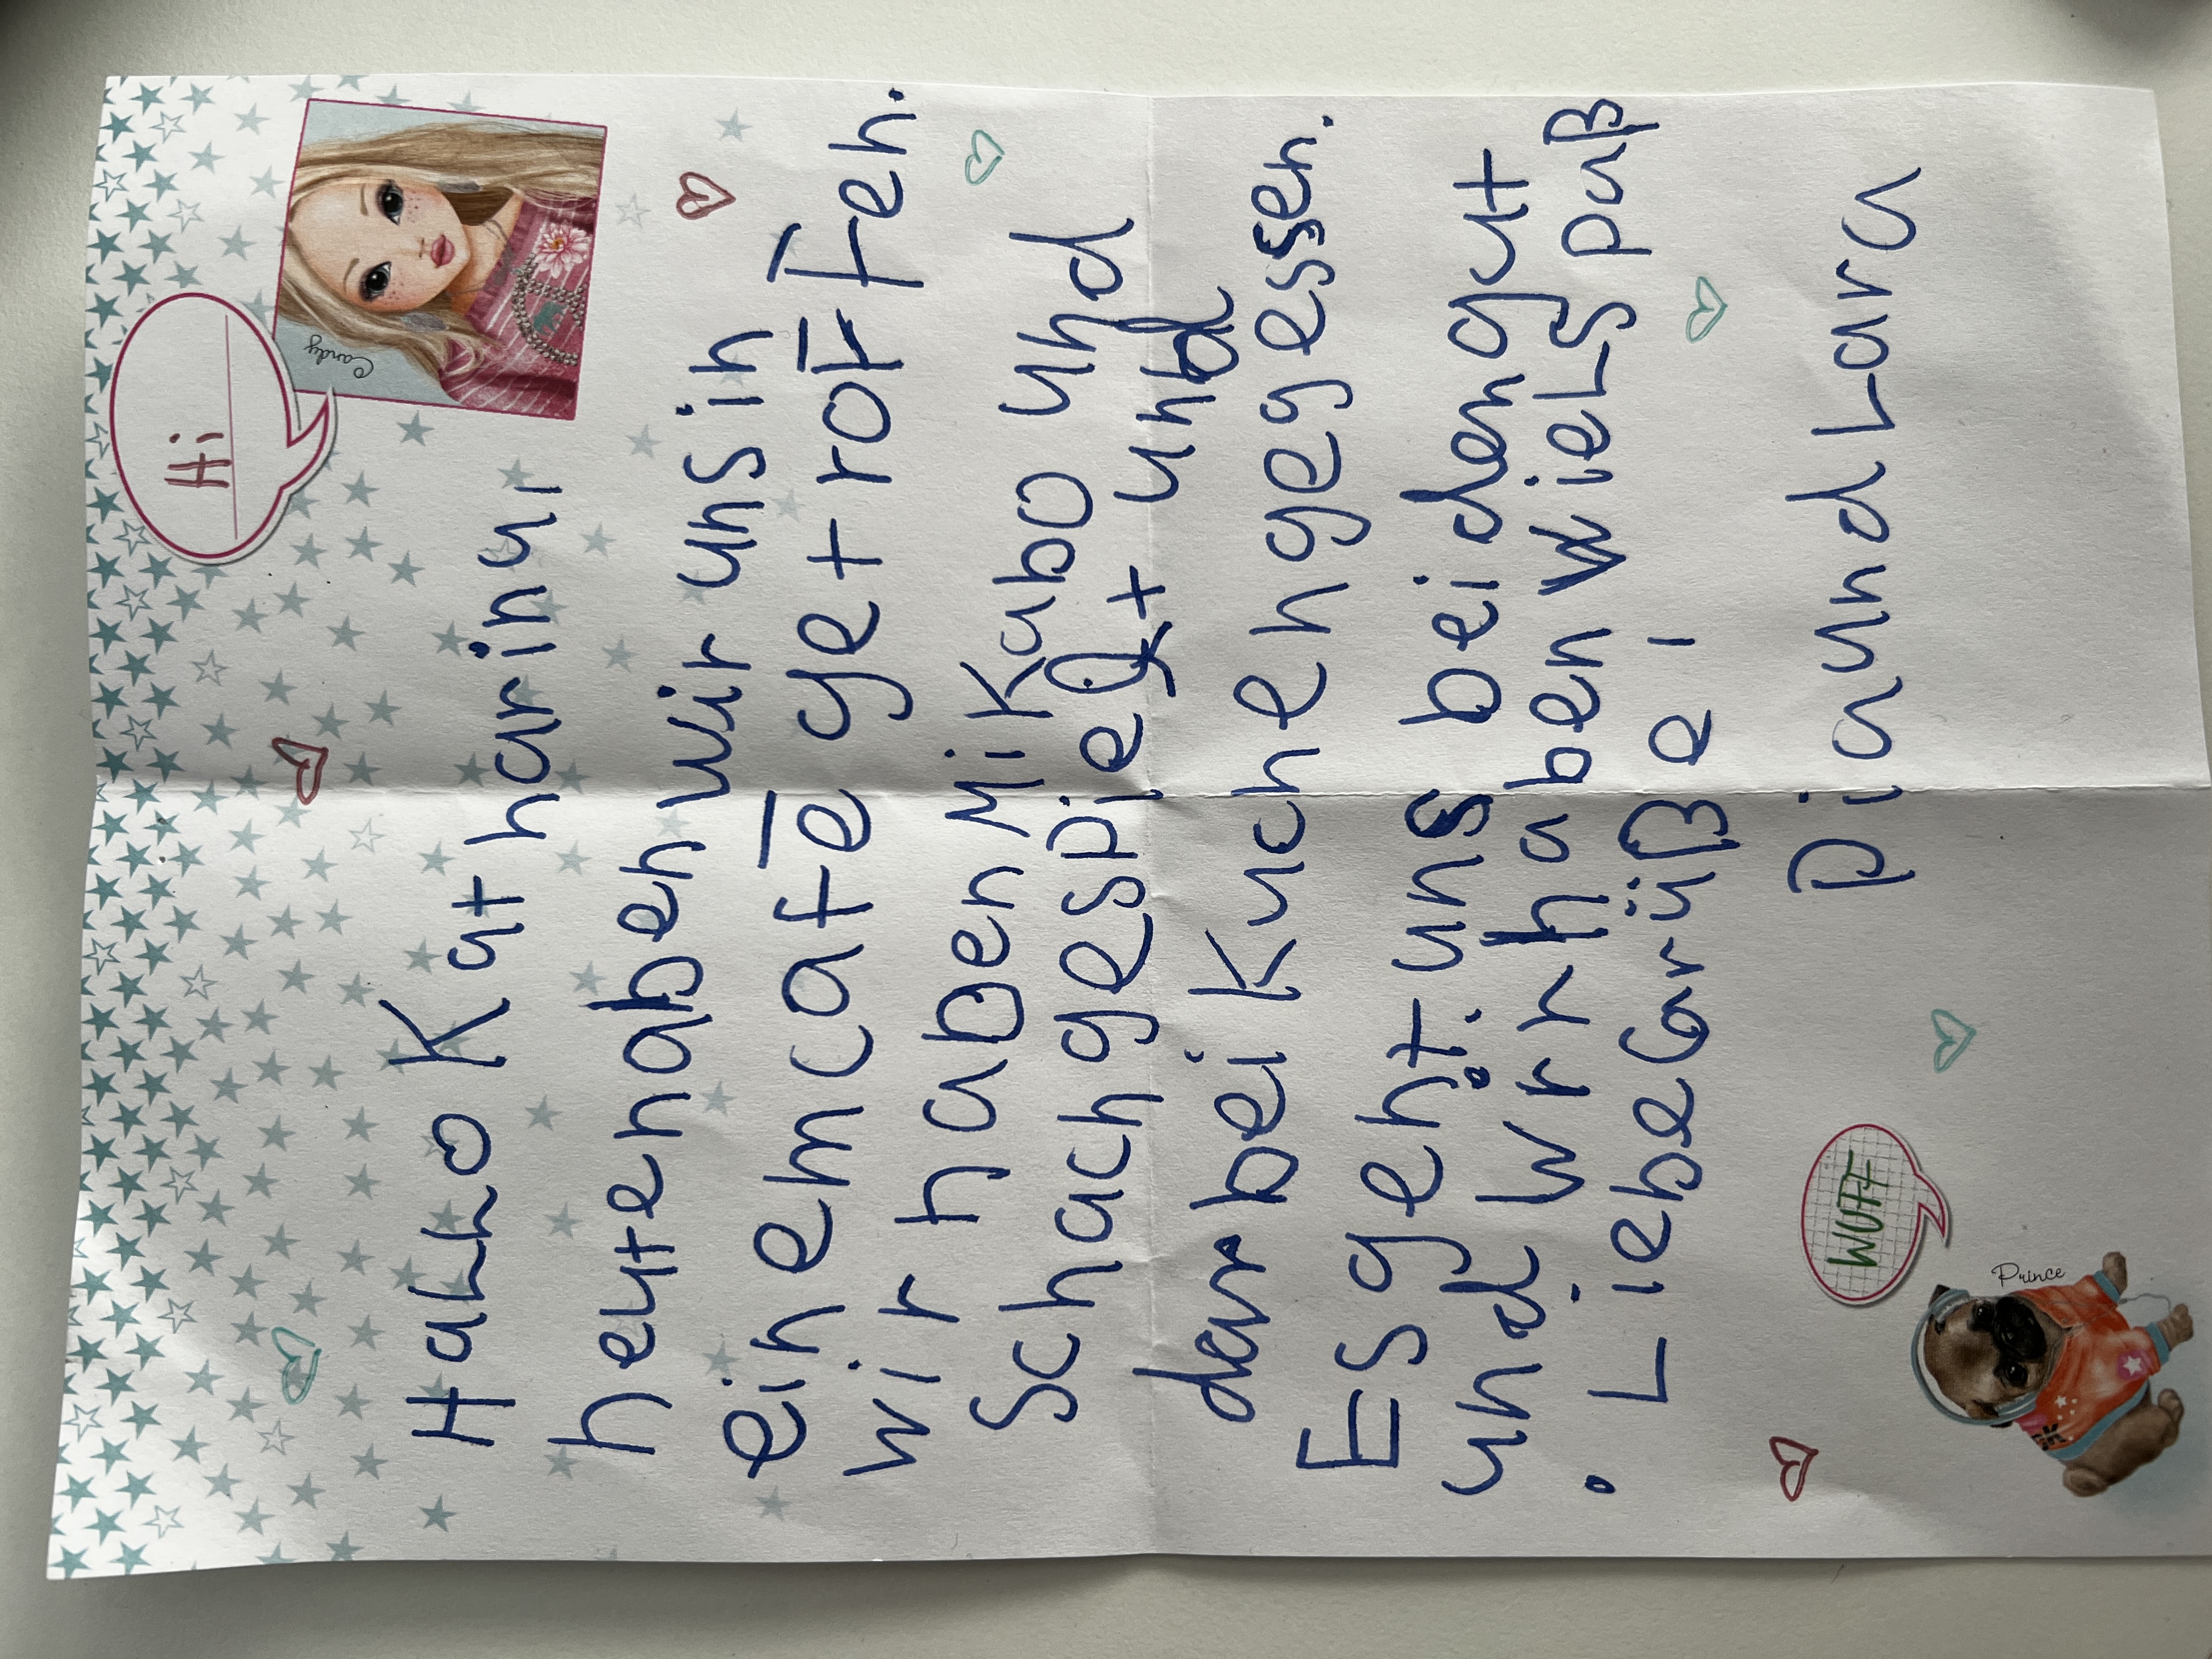 Hi
Candy
Hallo Katharina,
heute haben wir uns in
einem café getroffen.
wir haben Mikabo und
Schach gespielt und
darbei Kuchen gegessen.
Es geht uns beiden gut
und wir haben viel spaß
. Liebe Grüße,
pia und Lara
WUFF
Prince